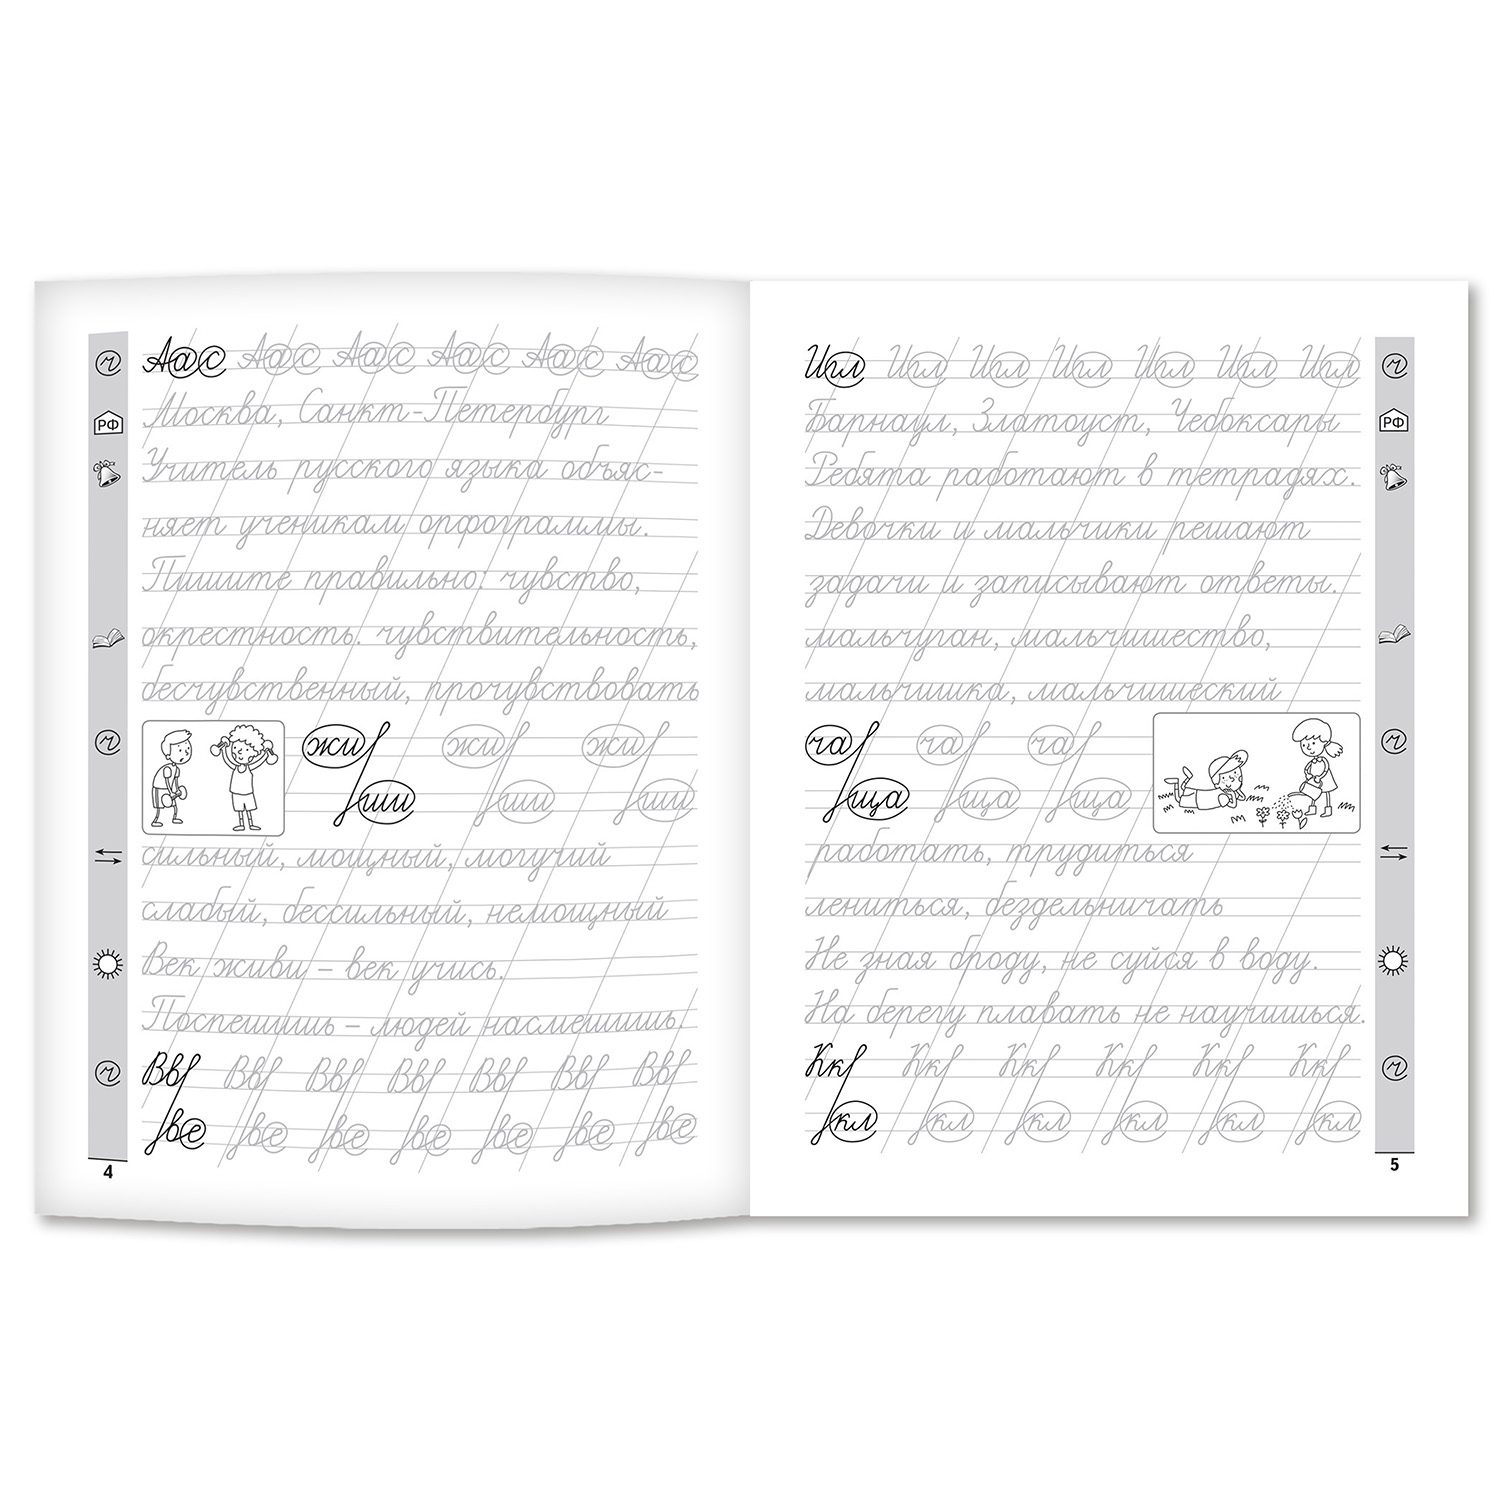 Аас Аас Аас Аас Аас Аас
Москва, Санкт-Петербург
Учитель русского языка объяс-
няет ученикам орфограммы.
Пишите правильно: чувство,
окрестность. чувствительность,
бесчувственный, прочувствовать
жи жи жи
ши ши ши
сильный, мощный, могучий
слабый, бессильный, немощный
Век живи – век учись.
Поспешишь – людей насмешишь.
Вв Вв Вв Вв Вв Вв Вв
ве ве ве ве ве ве ве
4
Игл Игл Игл Игл Игл Игл Игл
Барнаул, Златоуст, Чебоксары
Ребята работают в тетрадях.
Девочки и мальчики решают
задачи и записывают ответы.
мальчуган, мальчишество,
мальчишка, мальчишеский
ча ча ча
ща ща ща
работать, трудиться
лениться, бездельничать
Не зная броду, не суйся в воду.
На берегу плавать не научишься.
Кк Кк Кк Кк Кк Кк
кл кл кл кл кл кл
5
ч
РФ
ч
ч
ч
РФ
ч
ч